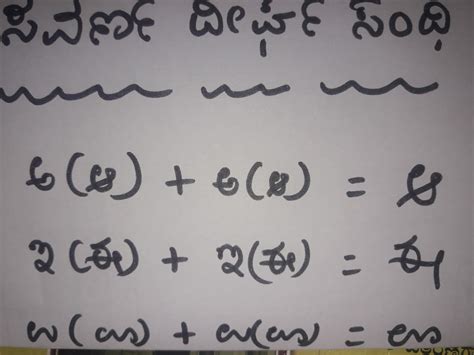 ಸವರ್ಣ ದೀರ್ಘ ಸಂಧಿ
ಅ(ಆ) + ಅ(ಆ) = ಆ
ಇ(ಈ) + ಇ(ಈ) = ಈ
ಉ(ಊ) + ಉ(ಊ) = ಊ